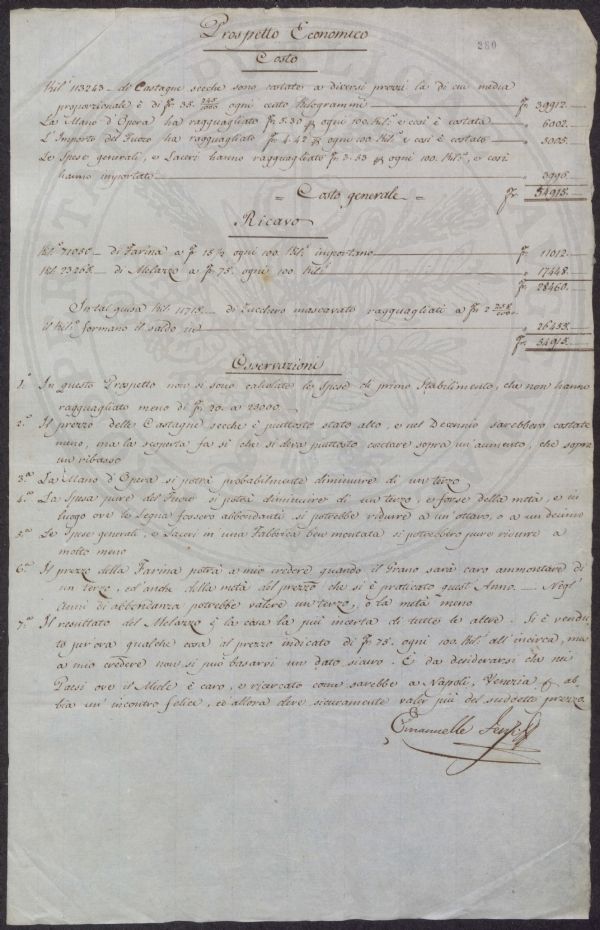 Prospetto Economico
280
Costo
Kil.i 113243 — di Castagne secche sono costate a diversi prezzi la di cui media
proporzionale è di fr. 35. 245/1000 ogni cento kilogrammi — fr. 39912. —
La Mano d'Opera ha ragguagliato fr. 5.30 ogni 100. Kil.i e così è costata — " 6002. —
L'Importo del Fuoco ha ragguagliato fr. 4.42 ogni 100. Kil.i e così è costato — " 5005. —
Le Spese generali, e Laceri hanno ragguagliato fr. 3.53 ogni 100. Kil.i, e così
hanno importato — " 3996. —
= Costo generale = fr. 54915. —
Ricavo
Kil.i 71050 — di Farina a fr. 15 1/2 ogni 100. Kil.i importano — fr. 11012. —
Kil. 23265 — di Melazzo a fr. 75. ogni 100 Kil.i — " 17448. —
fr. 28460. —
In tal guisa Kil. 11715 — di Zucchero mascavato ragguagliati a fr. 2
il Kil.o formano il saldo in — " 26455. —
fr. 54915. —
Osservazioni
1.a In questo Prospetto non si sono calcolate le Spese di primo Stabilimento, che non hanno
ragguagliato meno di fr. 20. a 25000 —
2.a Il prezzo delle Castagne secche è piuttosto stato alto, e nel Decennio sarebbero costate
meno, ma la scoperta fa si che si deva piuttosto contare sopra un'aumento, che sopra
un ribasso
3.a La Mano d'Opera si potrà probabilmente diminuire di un terzo
4.a La Spesa pure del Fuoco si poterà diminuire di un terzo, e forse della metà, e in
luogo ove le Legna fossero abbondanti si potrebbe ridurre a un'ottavo, o a un decimo
5.a Le Spese generali, e Laceri in una Fabbrica ben montata si potrebbero pure ridurre a
molto meno
6.a Il prezzo della Farina potrà a mio credere quando il Grano sarà caro aumentare di
un terzo, ed anche della metà del prezzo che si è praticato quest'Anno. — Negl'
Anni di abbondanza potrebbe valere un terzo, o la metà meno
7.a Il resultato del Melazzo è la cosa la più incerta di tutte le altre. Si è vendu
to pur'ora qualche cosa al prezzo indicato di fr. 75. ogni 100. Kil.i all'incirca, ma
a mio credere non si può basarvi un dato sicuro. È da desiderarsi che nei
Paesi ove il Miele è caro, e ricercato come sarebbe a Napoli, Venezia &. ab
bia un'incontro felice, ed allora deve sicuramente valer più del suddetto prezzo
Emanuelle